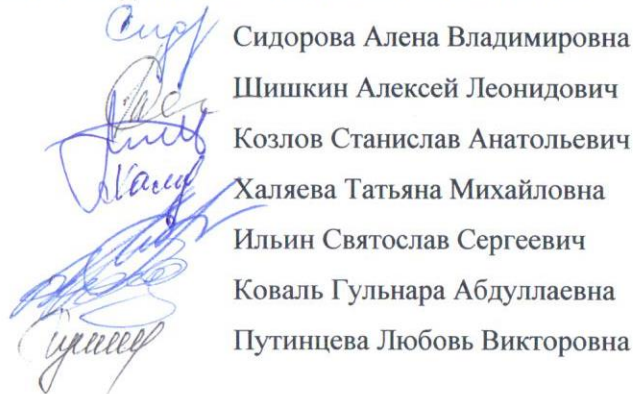 Сидорова Алена Владимировна
Шишкин Алексей Леонидович
Козлов Станислав Анатольевич
Халяева Татьяна Михайловна
Ильин Святослав Сергеевич
Коваль Гульнара Абдуллаевна
Путинцева Любовь Викторовна